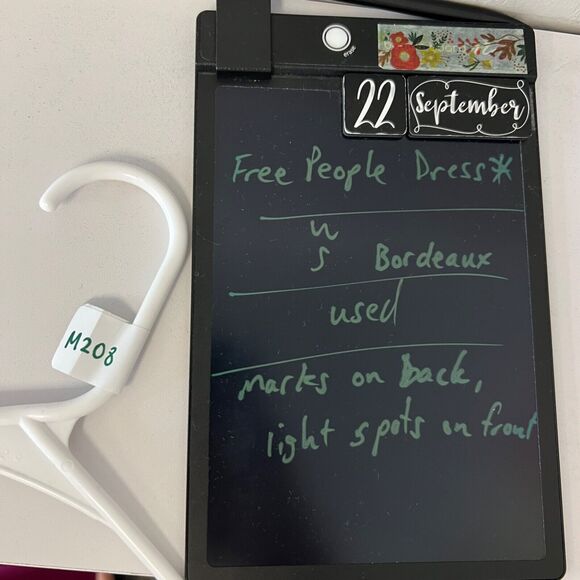 erase
22 September
Free People Dress*
W
S Bordeaux
used
marks on back,
light spots on front
M208